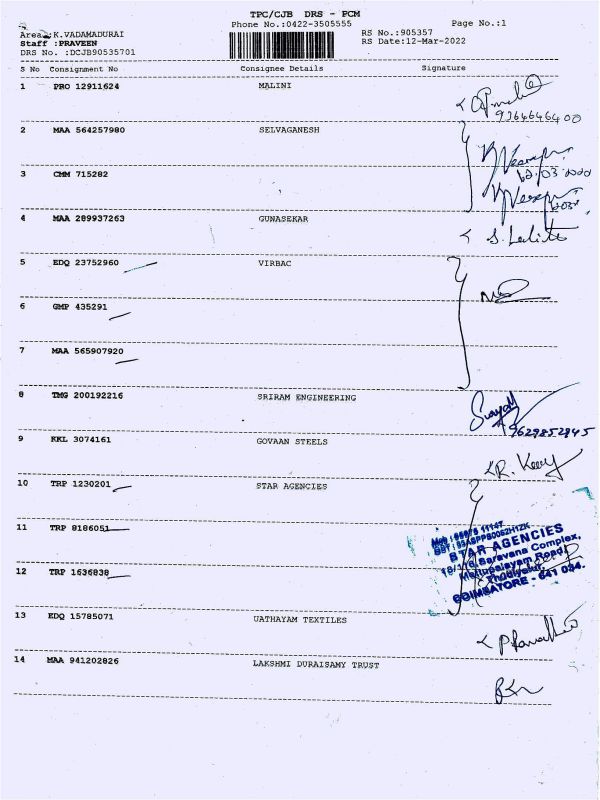 TPC/CJB DRS - PCM
Phone No.:0422-3505555
Page No.:1
Area :K.VADAMADURAI
Staff :PRAVEEN
DRS No. :DCJB90535701
RS No.:905357
RS Date:12-Mar-2022
S No Consignment No Consignee Details Signature
1 PRO 12911624 MALINI
9364646400
2 MAA 564257980 SELVAGANESH
3 CMM 715282
4 MAA 289937263 GUNASEKAR
S. Lalita
5 EDQ 23752960 VIRBAC
6 GMP 435291
7 MAA 565907920
8 TMG 200192216 SRIRAM ENGINEERING
9629852945
9 KKL 3074161 GOVAAN STEELS
10 TRP 1230201 STAR AGENCIES
11 TRP 8186051
STAR AGENCIES
Saravana Complex,
Mettupalayam Road,
Thudiyalur,
COIMBATORE - 641 034.
12 TRP 1636838
13 EDQ 15785071 UATHAYAM TEXTILES
14 MAA 941202826 LAKSHMI DURAISAMY TRUST